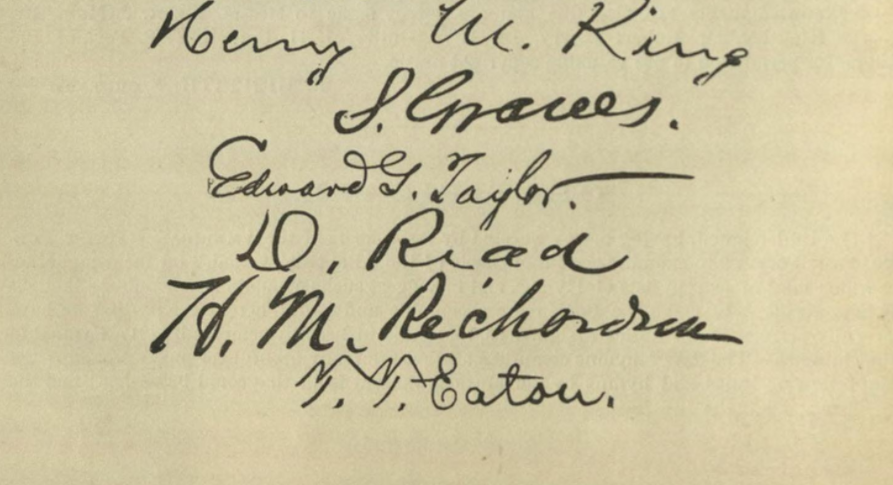 Henry M. King
S. Graves.
Edward G. Taylor.
D. Read
H. M. Richardson
T. T. Eaton.